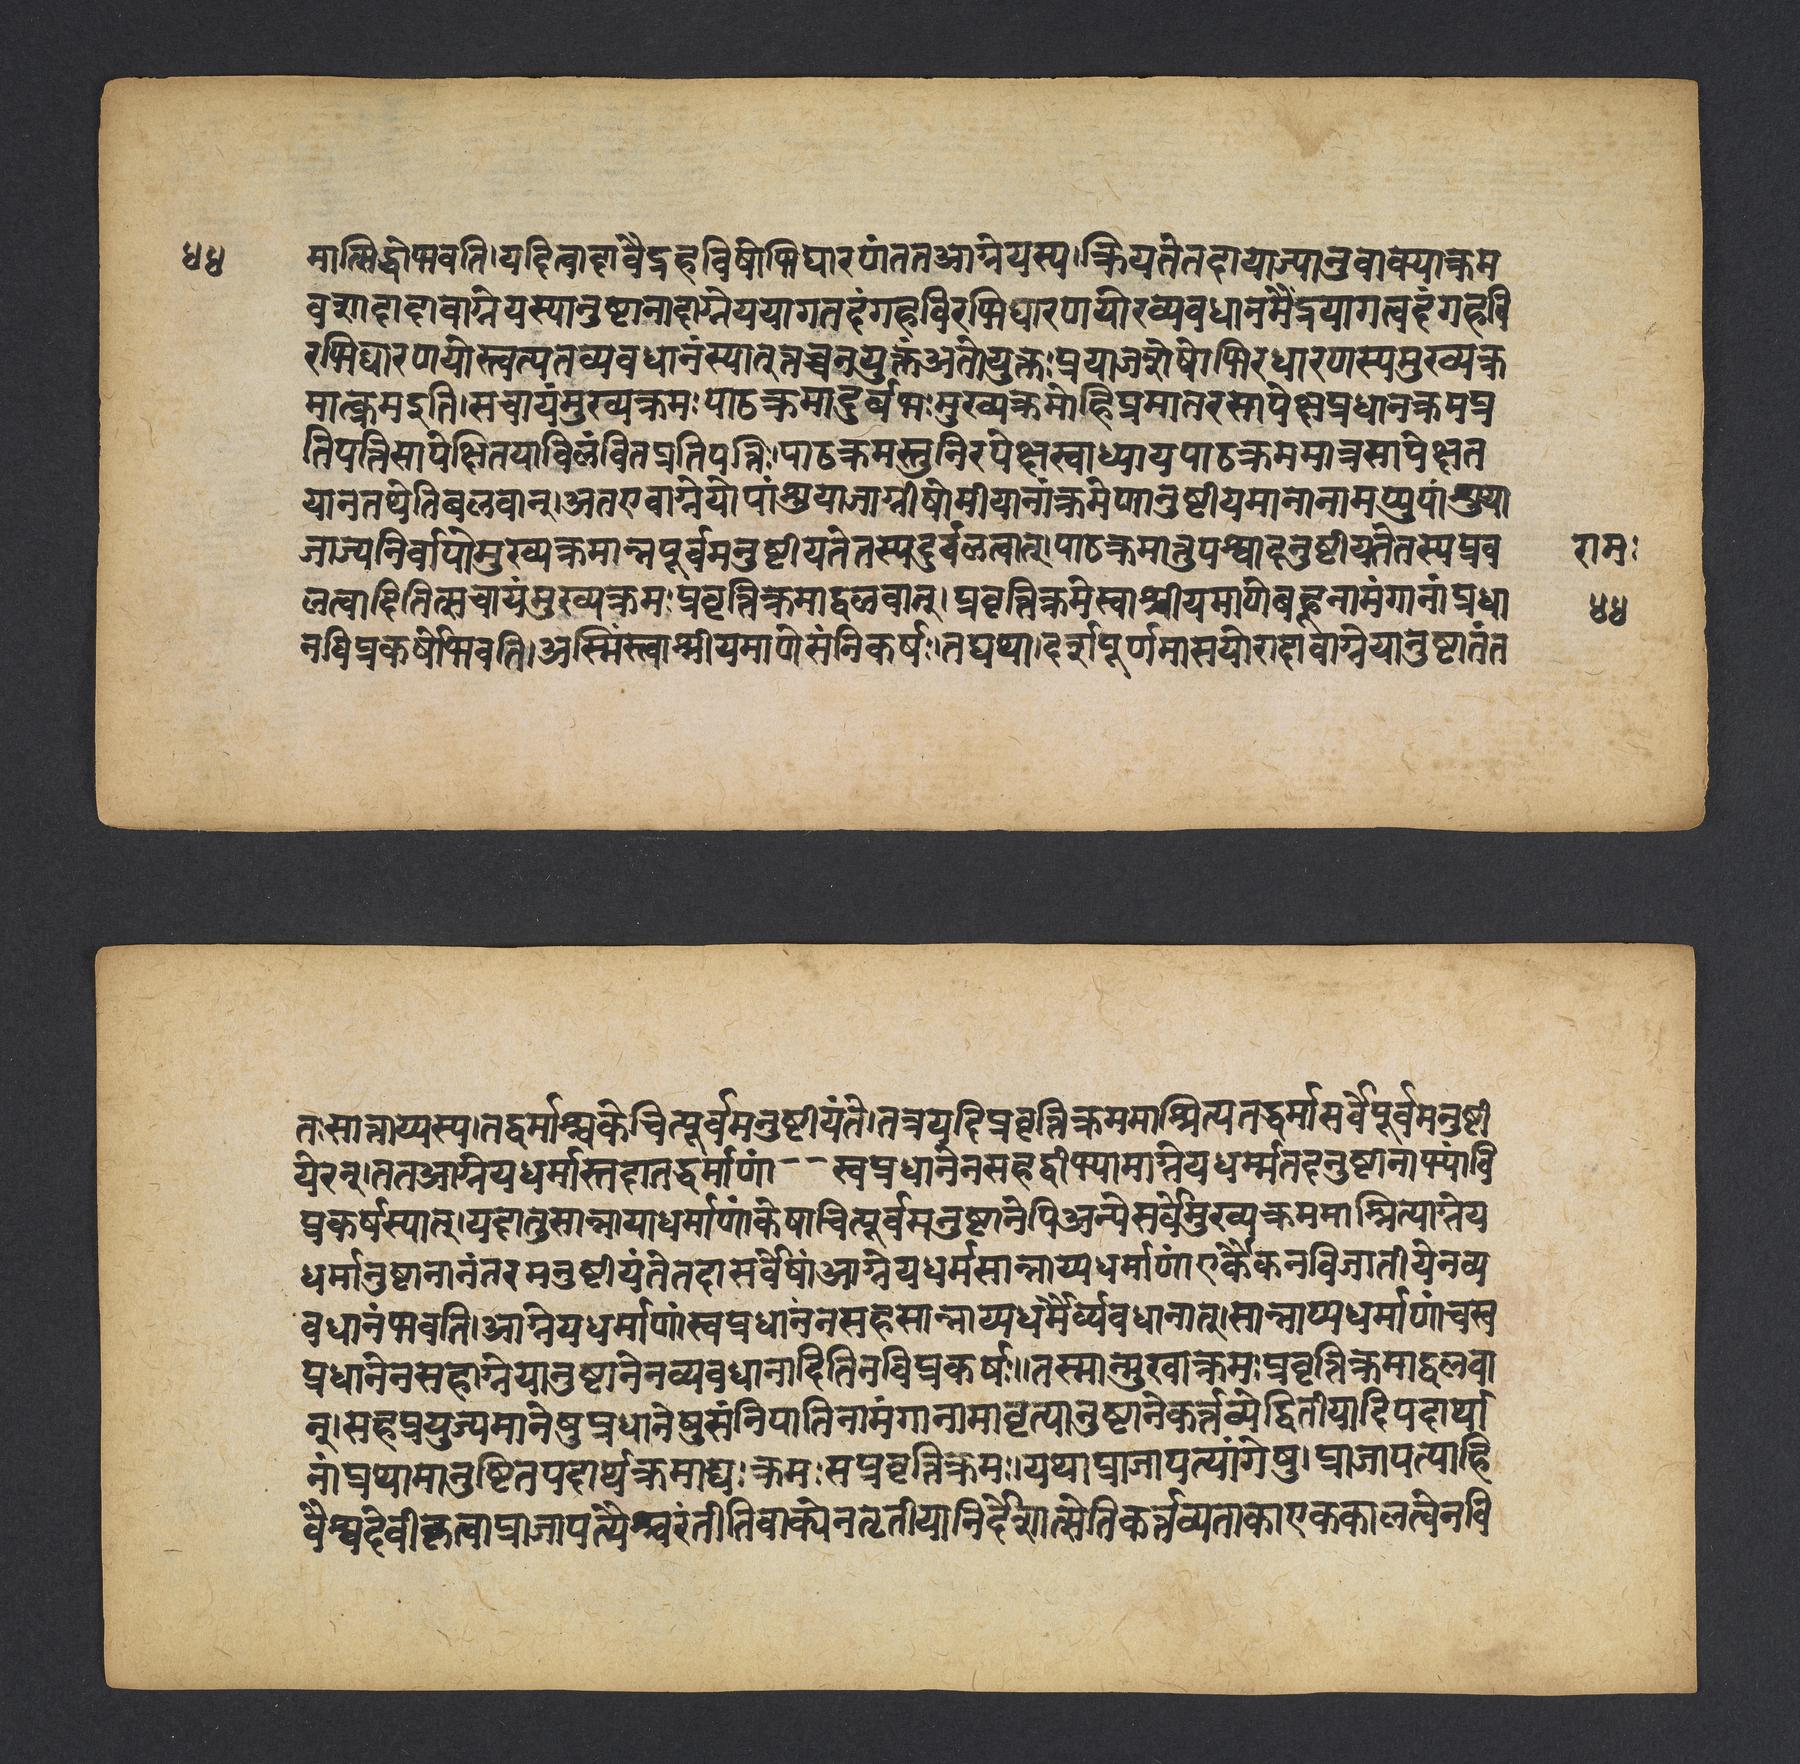 ४४
मात्सिद्धोभवति।यदित्वादावैंद्रहविषोभिघारणंततआग्नेयस्य।क्रियतेतदायाज्यानुवाक्याक्रम
वशादादावाग्नेयस्यानुष्टानादाग्नेययागतदंगहविरभिघारणयोरव्यवधानमैंद्रयागत्वदंगहवि
रभिघारणयोस्त्वत्यतव्यवधानंस्यात्तच्चनुयुक्तंअतोयुक्तःप्रयाजशेषेणभिरधारणस्यमुख्यक्र
मात्क्रमइति।सचायंमुख्यक्रमःपाठक्रमाद्दुर्बभःमुख्यक्रमोहिप्रमातरसापेक्षप्रधानक्रमप्र
तिपत्तिसापेक्षितयाविलंवितप्रतिपत्तिः।पाठक्रमस्तुनिरपेक्षस्वाध्यायपाठक्रममात्रसापेक्षत
यानतथेतिबलवान्।अतएवाग्नेयोपांशुयाजाग्नीषोमीयानांक्रमेणानुष्टीयमानानामप्युपांशुया
जाज्यनिर्वापोमुख्यक्रमान्नपूर्वमनुष्टीयतेतस्यदुर्बलत्वात्।पाठक्रमात्तुपश्चादनुष्टीयतेतस्यप्रब
रामः
लत्वादितित्सचायंमुख्यक्रमःप्रवृत्तिक्रमाद्वलवान्।प्रवृत्तिक्रमेस्वाश्रीयमाणेबहूनामंगानांप्रधा
४४
नविप्रकर्षोभवति।अस्मिंस्त्वाश्रीयमाणेसंनिकर्षः।तद्यथा।दर्शपूर्णमासयोरादावाग्नेयानुष्टातंत
तःसान्नाय्यस्य।तद्धर्माश्चकेचित्पूर्वमनुष्टीयंते।तत्रयदिप्रवृत्तिक्रममाश्रित्यतद्धर्मासर्वेपूर्वमनुष्टी
येरन्।ततआग्नेयधर्मास्तदातद्धर्माणां--स्वप्रधानेनसहद्वीभ्यामाग्नेयधर्म्मतदनुष्टानाभ्यांवि
प्रकर्षस्यात्।यदातुसान्नायाधर्माणांकेषाचित्पूर्वमनुष्टानेपिअन्येसर्वेमुख्यक्रममाश्रित्याग्नेय
धर्मानुष्टानानंतरमनुष्टीयंतेतदासर्वेषांआग्नेयधर्मसान्नाय्यधर्माणांएकैकनविजातीयेनव्य
वधानंभवति।आग्नेयधर्माणांस्वप्रधानंनसहसान्नाय्यधर्मैर्व्यवधानात्।सान्नाय्यधर्माणांचस्व
प्रधानेनसहाग्नेयानुष्टानेनव्यवधानादितिनविप्रकर्षः॥तस्मान्मुखाक्रमःप्रवृत्तिक्रमाद्वलवा
न्।सहप्रयुज्यमानेषुप्रधानेषुसंनिपातिनामंगानामावृत्यानुष्टानेकर्त्तव्येद्वितीयादिपदार्था
नांप्रथामानुष्टितपदार्थक्रमाद्यःक्रमःसप्रवृत्तिक्रमः।यथाप्राजापत्यांगेषु।प्राजापत्याहि
वैश्वदेवीकृत्वाप्राजापत्यैश्चरंतीतिवाक्येनतृतीयानिर्देशात्सेतिकर्त्तव्यताकाएककालत्वेनवि